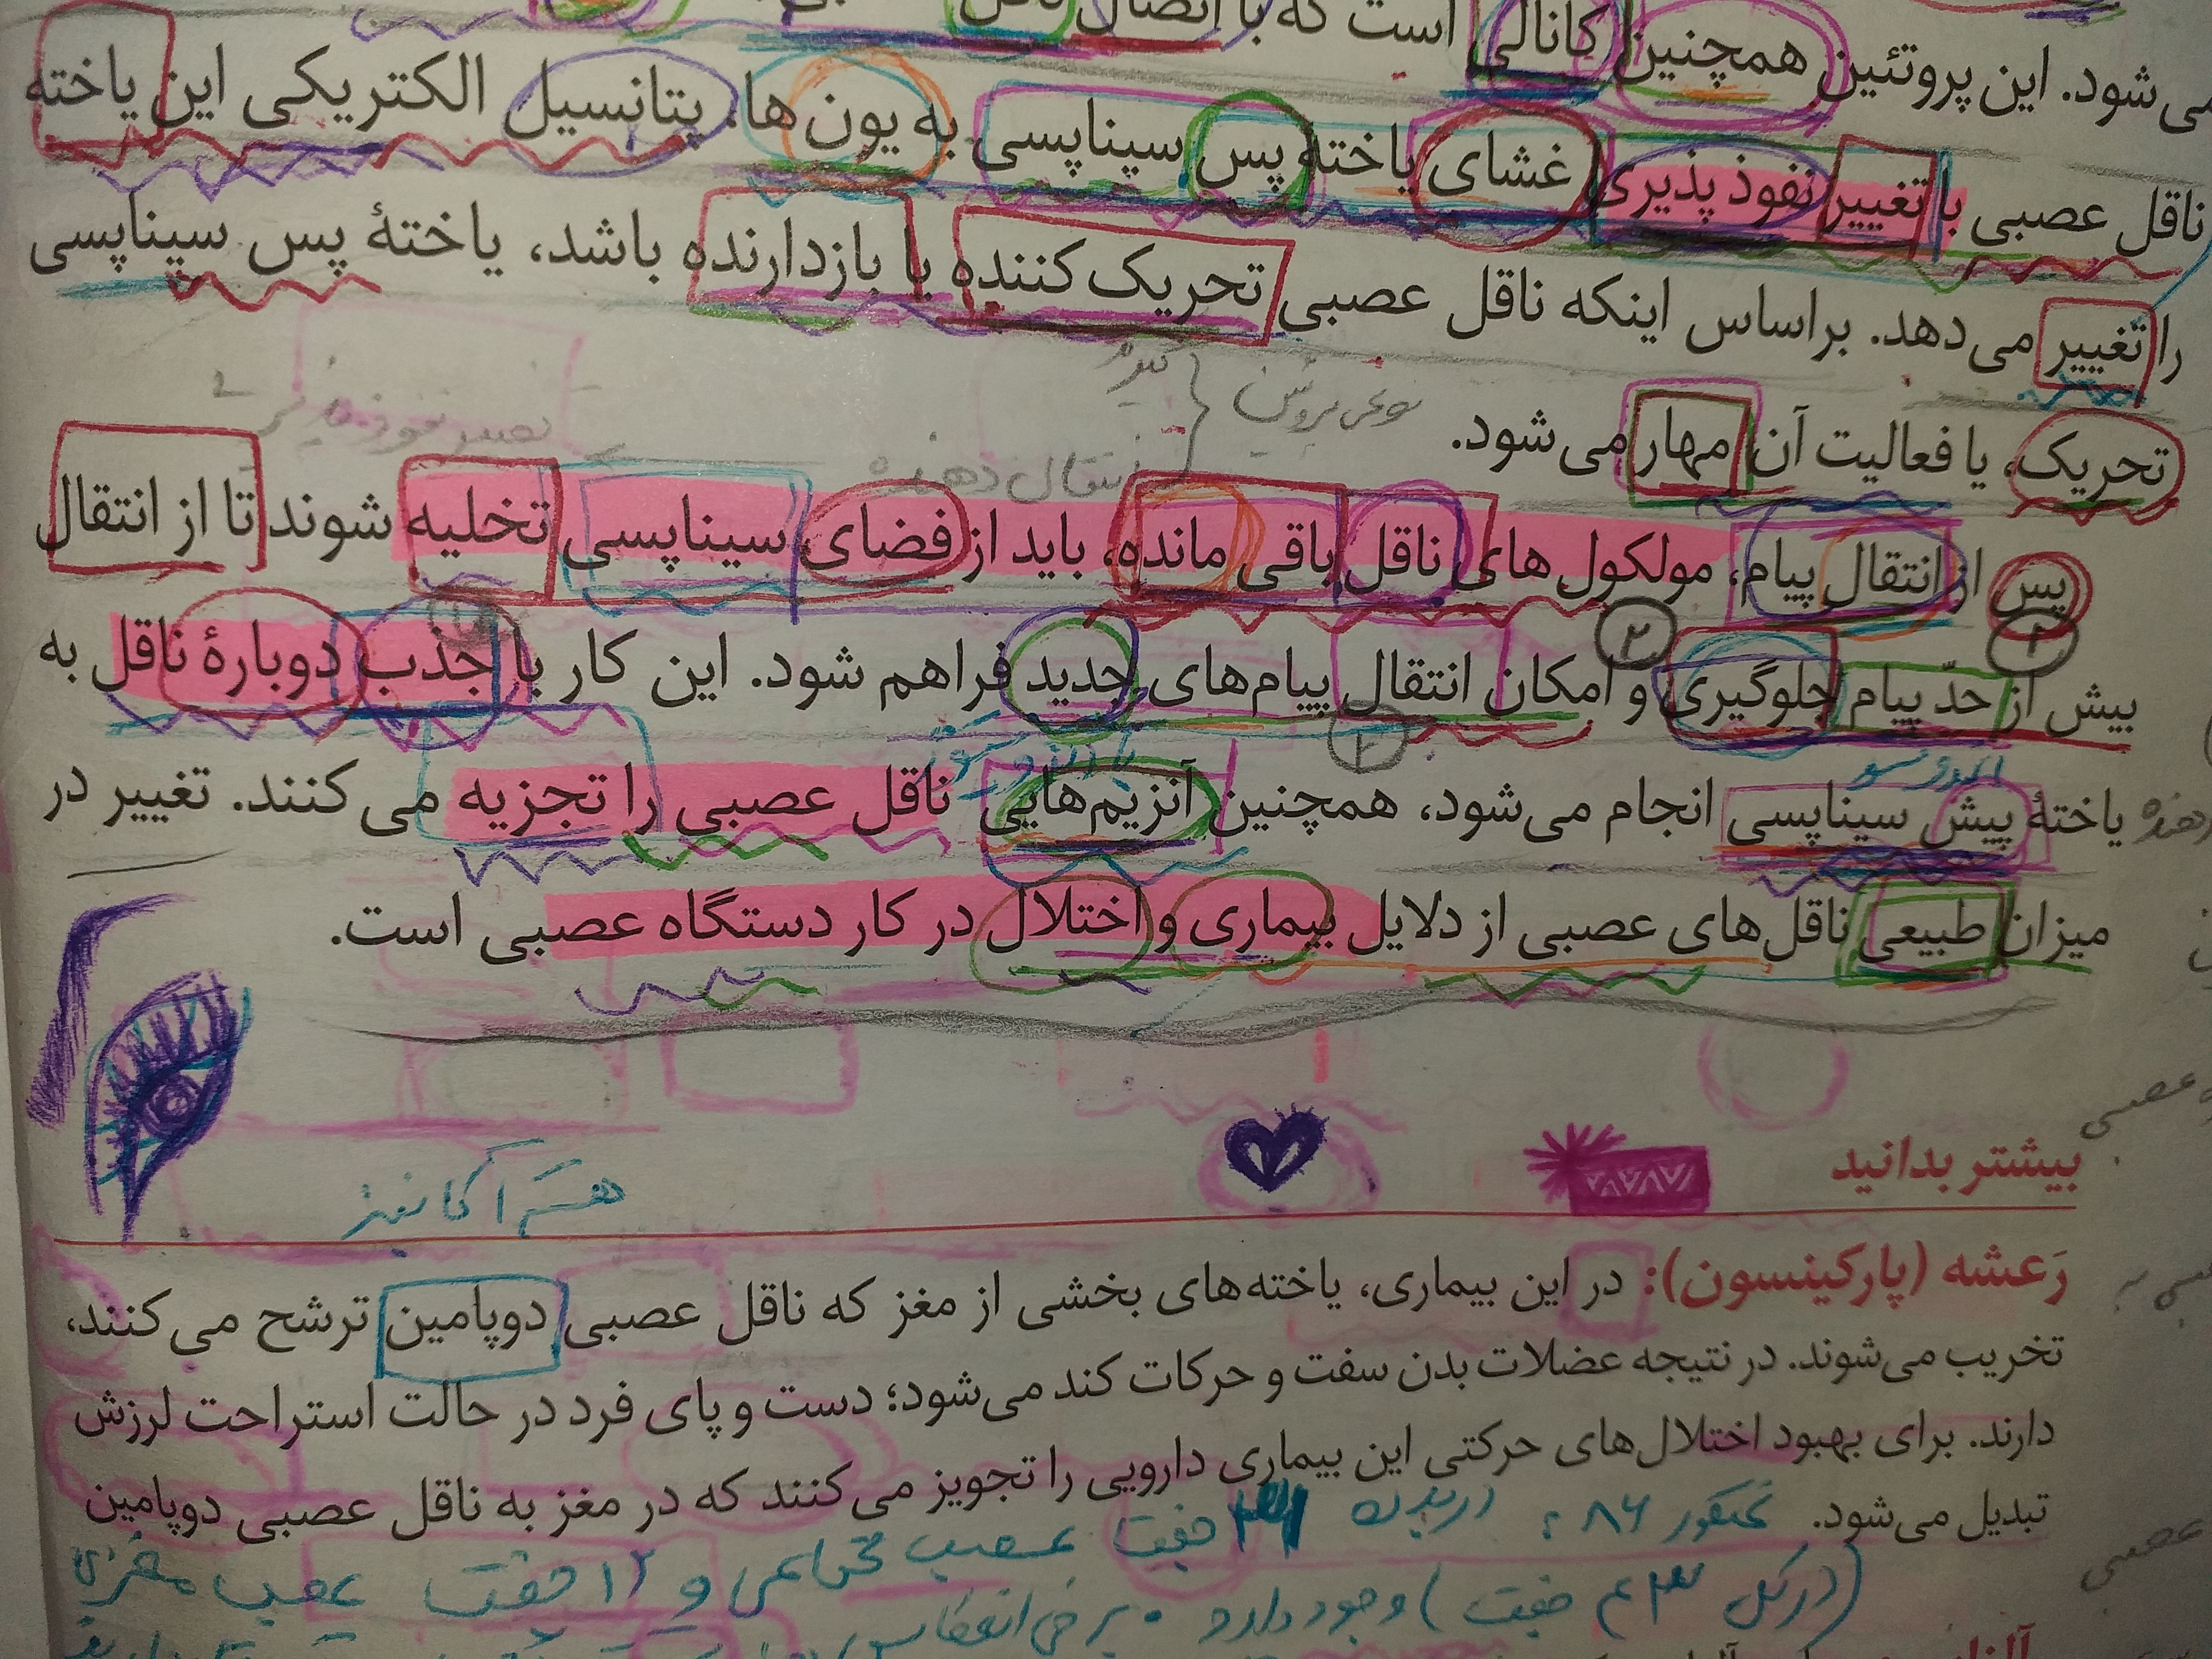 می‌شود. این پروتئین همچنین کانالی است که با اتصال ناقل
ناقل عصبی با تغییر نفوذپذیری غشای یاخته پس سیناپسی به یون‌ها، پتانسیل الکتریکی این یاخته
را تغییر می‌دهد. براساس اینکه ناقل عصبی تحریک‌کننده یا بازدارنده باشد، یاختهٔ پس سیناپسی
تحریک، یا فعالیت آن مهار می‌شود.
نوعی پروتئین
گیرنده
انتقال دهنده
تغییر نفوذپذیری
پس از انتقال پیام، مولکول‌های ناقل باقی مانده، باید از فضای سیناپسی تخلیه شوند تا از انتقال
۱
۲
۱
بیش از حدّ پیام جلوگیری و امکان انتقال پیام‌های جدید فراهم شود. این کار با جذب دوبارهٔ ناقل به
۲
یاختهٔ پیش سیناپسی انجام می‌شود، همچنین آنزیم‌هایی ناقل عصبی را تجزیه می‌کنند. تغییر در
میزان طبیعی ناقل‌های عصبی از دلایل بیماری و اختلال در کار دستگاه عصبی است.
بیشتر بدانید
عصبی
رَعشه (پارکینسون): در این بیماری، یاخته‌های بخشی از مغز که ناقل عصبی دوپامین ترشح می‌کنند،
تخریب می‌شوند. در نتیجه عضلات بدن سفت و حرکات کند می‌شود؛ دست و پای فرد در حالت استراحت لرزش
دارند. برای بهبود اختلال‌های حرکتی این بیماری دارویی را تجویز می‌کنند که در مغز به ناقل عصبی دوپامین
تبدیل می‌شود.
عصبی
کنکور ۸۶: در بدن ۳۱ جفت عصب نخاعی و ۱۲ جفت عصب مغزی
(در کل ۴۳ جفت) وجود دارد.